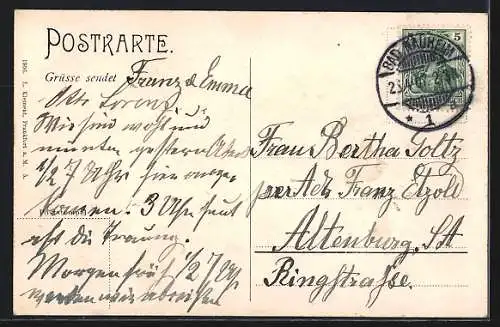 POSTKARTE.
Grüsse sendet Franz & Emma
Otto Lorenz
Wir sind wohl und
munter gestern Abend
1/2 7 Uhr hier ange-
kommen. 3 Uhr heut
ist die Trauung.
Morgen früh 1/2 7 Uhr
werden wir abreisen
1906. L. Klement, Frankfurt a. M. A.
5
BAD-NAUHEIM
* 1
Frau Bertha Soltz
per Adr Franz Etzold
Altenburg. S/A
Ringstrasse.